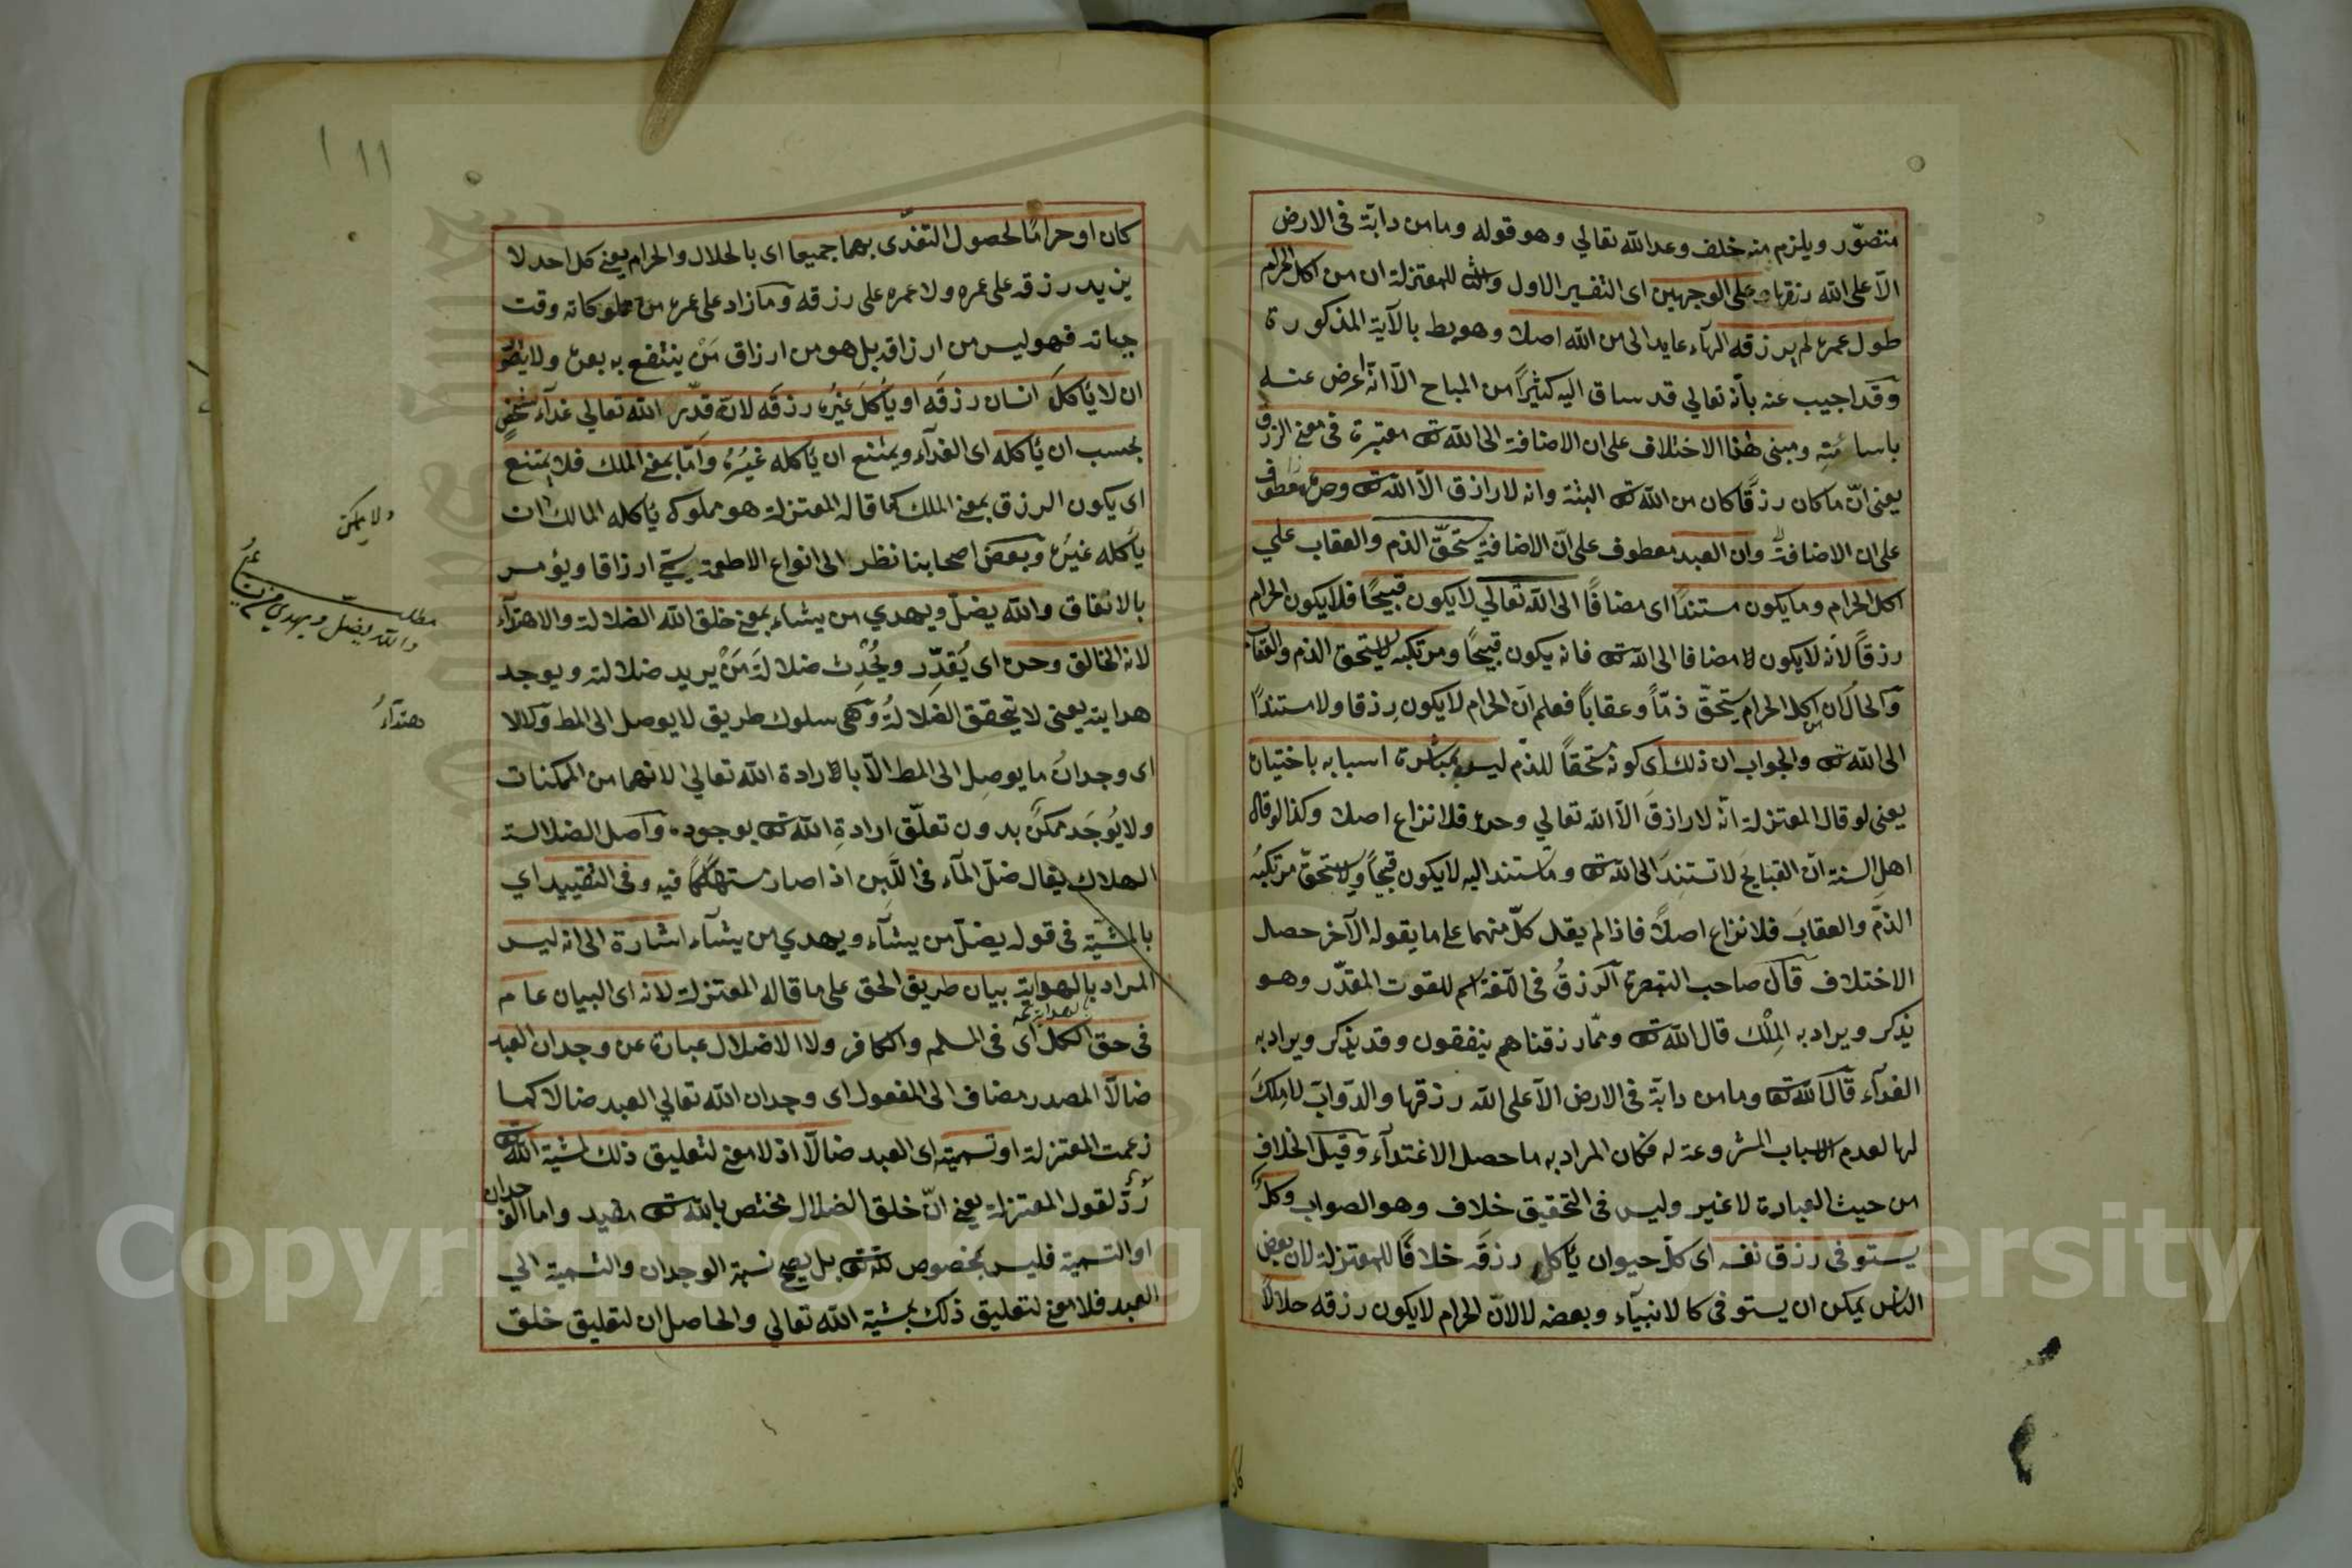 متصوّر ويلزم منه خلف وعد الله تعالي وهو قوله وما من دابّة فى الارض
الّا على الله رزقها وعلى الوجهين اى التفسير الاول والثا للمعتزلة ان من اكل الحرام
طول عمره لم يرزقه الهآء عايد الى من الله اصلا وهو يط بالآية المذكورة
وقد اجيب عنه بأنّه تعالي قد ساق اليه كثيرًا من المباح الّا انّه اعرض عنه
ومبنى هذا الاختلاف على ان الاضافة الى الله تع معتبرة فى معنى الرزق
يعنى انّ ما كان رزقًا كان من الله تع البتة وانه لا رازق الّا الله تع وحده معطوف
على ان الاضافة وان العبد معطوف على انّ الاضافة يستحقّ الذم والعقاب علي
اكل الحرام وما يكون مستندًا اى مضافًا الى الله تعالي لا يكون قبيحًا فلا يكون الحرام
رزقًا لانه لا يكون مضافا الى الله تع فانه يكون قبيحًا ومرتكبه يستحق الذم والعقاب
والحال ان اكل الحرام يستحقّ ذمّا وعقابًا فعلم انّ الحرام لا يكون رزقا ولا مستندًا
الى الله تع والجواب ان ذلك اى كونه مستحقًا للذّم ليس بمباشرة اسبابه باختياره
يعنى لو قال المعتزلة انّه لا رازق الّا الله تعالي وحده فلا نزاع اصلا وكذا لو قال
اهل السنة انّ القبايح لا تستند الى الله تع وما تستند اليه لا يكون قبيحًا ولا يستحقّ مرتكبه
الذمّ والعقاب فلا نزاع اصلًا فاذا لم يقل كلّ منهما على ما يقوله الآخر حصل
الاختلاف قال صاحب التبصرة الرزق فى اللغة اسم للقوت المقدّر وهو
يذكر ويراد به المِلْك قال الله تع وممّا رزقناهم ينفقون وقد يذكر ويراد به
الغدآء قال الله تع وما من دابّة فى الارض الّا على الله رزقها والدّوابّ لا مِلكَ
لها لعدم الاسباب المشروعة له فكان المراد به ما حصل الاغتدآء وقيل الخلاف
من حيث العبادة لا غير وليس فى التحقيق خلاف وهو الصواب وكلٌّ
يستوفى رزق نفسه اى كلّ حيوان يأكل رزقه خلافًا للمعتزلة لان بعض
الناس يمكن ان يستوفى كالانبيآء وبعضه لا لانّ الحرام لا يكون رزقه حلالًا
كان او حرامًا لحصول التغدّى بهما جميعا اى بالحلال والحرام يعنى كل احد لا
يزيد رزقه على عمره ولا عمره على رزقه وما زاد على عمره من مملوكاته وقت
حياته فهو ليس من ارزاقه بل هو من ارزاق مَنْ ينتفع به بعده ولا يتصوّر
ان لا يأكل انسان رزقه او يأكل غيرُه رزقه لانّه قدّر الله تعالي غدآء شخصٍ
بحسب ان يأكله اى الغدآء ويمتنع ان يأكله غيرُهُ وامّا بمعنى الملك فلا يمتنع
اى يكون الرزق بمعنى الملك كما قاله المعتزلة هو مملوك يأكله المالك ان
يأكله غيرُه وبعض اصحابنا نظر الى انواع الاطعمة يسمّى ارزاقا ويؤمر
بالانفاق والله يضلّ ويهدي من يشاء بمعنى خلق الله الضلالة والاهتدآء
لانه الخالق وحده اى يُقدِّر ويُحْدِث ضلالةَ مَنْ يريد ضلالته ويوجد
هدايته يعنى لا يتحقق الضلالةُ وهى سلوك طريق لا يوصل الى المط وكلالا
اى وجدانُ ما يوصِل الى المط الّا بالارادة الله تعالي لانهما من الممكنات
ولا يُوجَد ممكنٌ بدون تعلّق ارادةِ الله تع بوجوده واصل الضلالة
الهلاك يقال ضلّ المآء فى اللّبن اذا صار مستهلكًا فيه وفى التقييد اي
بالمشيّة فى قوله يضلّ من يشآء ويهدي من يشآء اشارة الى انه ليس
المراد بالهداية بيان طريق الحق على ما قاله المعتزلة لانه اى البيان عام
فى حق الكل اى فى المسلم والكافر ولا الاضلال عبارة عن وجدان العبد
ضالّا المصدر مضاف الى المفعول اى وجدان الله تعالي العبد ضالا كما
زعمت المعتزلة او تسميته اى العبد ضالّا اذ لا معنى لتعليق ذلك لمشية الله تع
ردّ لقول المعتزلة يعنى انّ خلق الضلال مختص بالله تع مقيد واما الوجدان
او التسمية فليس بمخصوص لله تع بل يصح نسبة الوجدان والتسمية الي
العبد فلا معنى لتعليق ذلك بمشية الله تعالي والحاصل ان لتعليق خلق
ولا يمكن
مطلب
والله يضلّ ويهدي من يشاء
هتدآءُ
١١١
Copyright © King Saud University